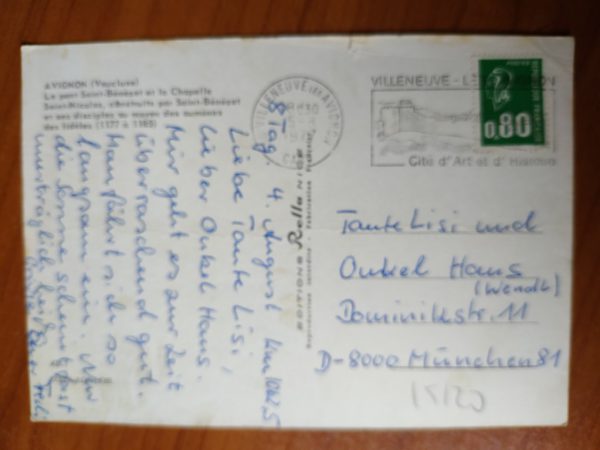 AVIGNON (Vaucluse)
Le pont Saint-Bénézet et la Chapelle
Saint-Nicolas, construits par Saint-Bénézet
et ses disciples au moyen des aumônes
des fidèles (1177 à 1185)
8 Tag. 4. August km 1025
Liebe Tante Lisi,
lieber Onkel Hans.
Mir geht es zur Zeit
überraschend gut.
Man fährt sich so
langsam ein. Nur
die Sonne scheint fast
unerträglich heiß.
Euer
EDITIONS Rella NICE
VILLENEUVE LES AVIGNON
VILLENEUVE - L
Cité d'Art et d'Histoire
POSTES
0,80
Tante Lisi und
Onkel Hans
(Wendl)
Dominikstr. 11
D-8000 München 81